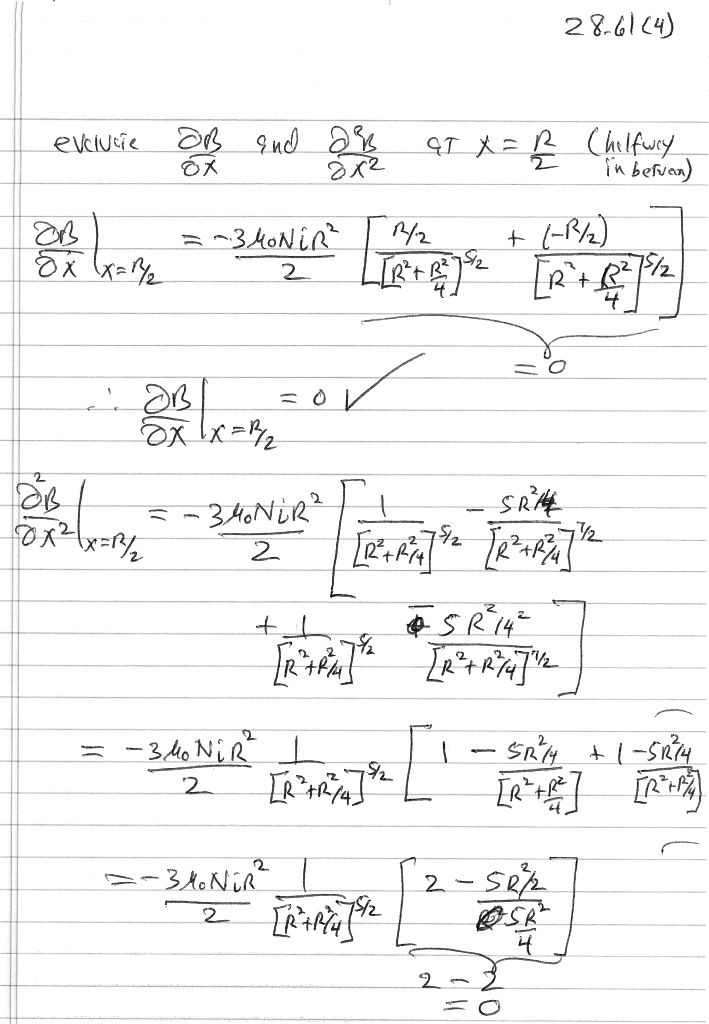 28.61(4)
evaluate ∂B/∂x and ∂²B/∂x² at x = R/2 (halfway in between)
∂B/∂x |x=R/2 = -3μ₀NiR²/2 [ R/2 / [R² + R²/4]^5/2 + (-R/2) / [R² + R²/4]^5/2 ]
= 0
∴ ∂B/∂x |x=R/2 = 0 ✓
∂²B/∂x² |x=R/2 = -3μ₀NiR²/2 [ 1 / [R²+R²/4]^5/2 - 5R²/4 / [R²+R²/4]^7/2
+ 1 / [R²+R²/4]^5/2 - 5R²/4² / [R²+R²/4]^7/2 ]
= -3μ₀NiR²/2 1 / [R²+R²/4]^5/2 [ 1 - 5R²/4 / [R²+R²/4] + 1 - 5R²/4 / [R²+R²/4]
= -3μ₀NiR²/2 1 / [R²+R²/4]^5/2 [ 2 - 5R²/2 / 5R²/4 ]
2 - 2
= 0